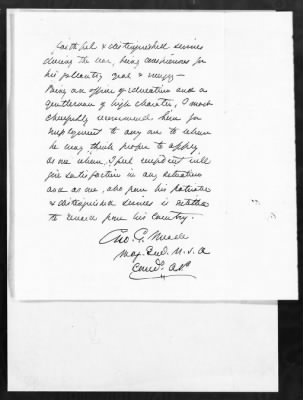 faithful & distinguished services
during the war, being conspicuous for
his gallantry zeal & energy —
Being an officer of education and a
gentleman of high character, I most
cheerfully recommend him for
employment to any one to whom
he may think proper to apply
as one whom, I feel confident will
give satisfaction in any situation
and as one, who from his patriotic
& distinguished services is entitled
to reward from his country.
Geo. G. Meade
Maj. Genl. U.S.A
Comdg. A.P.